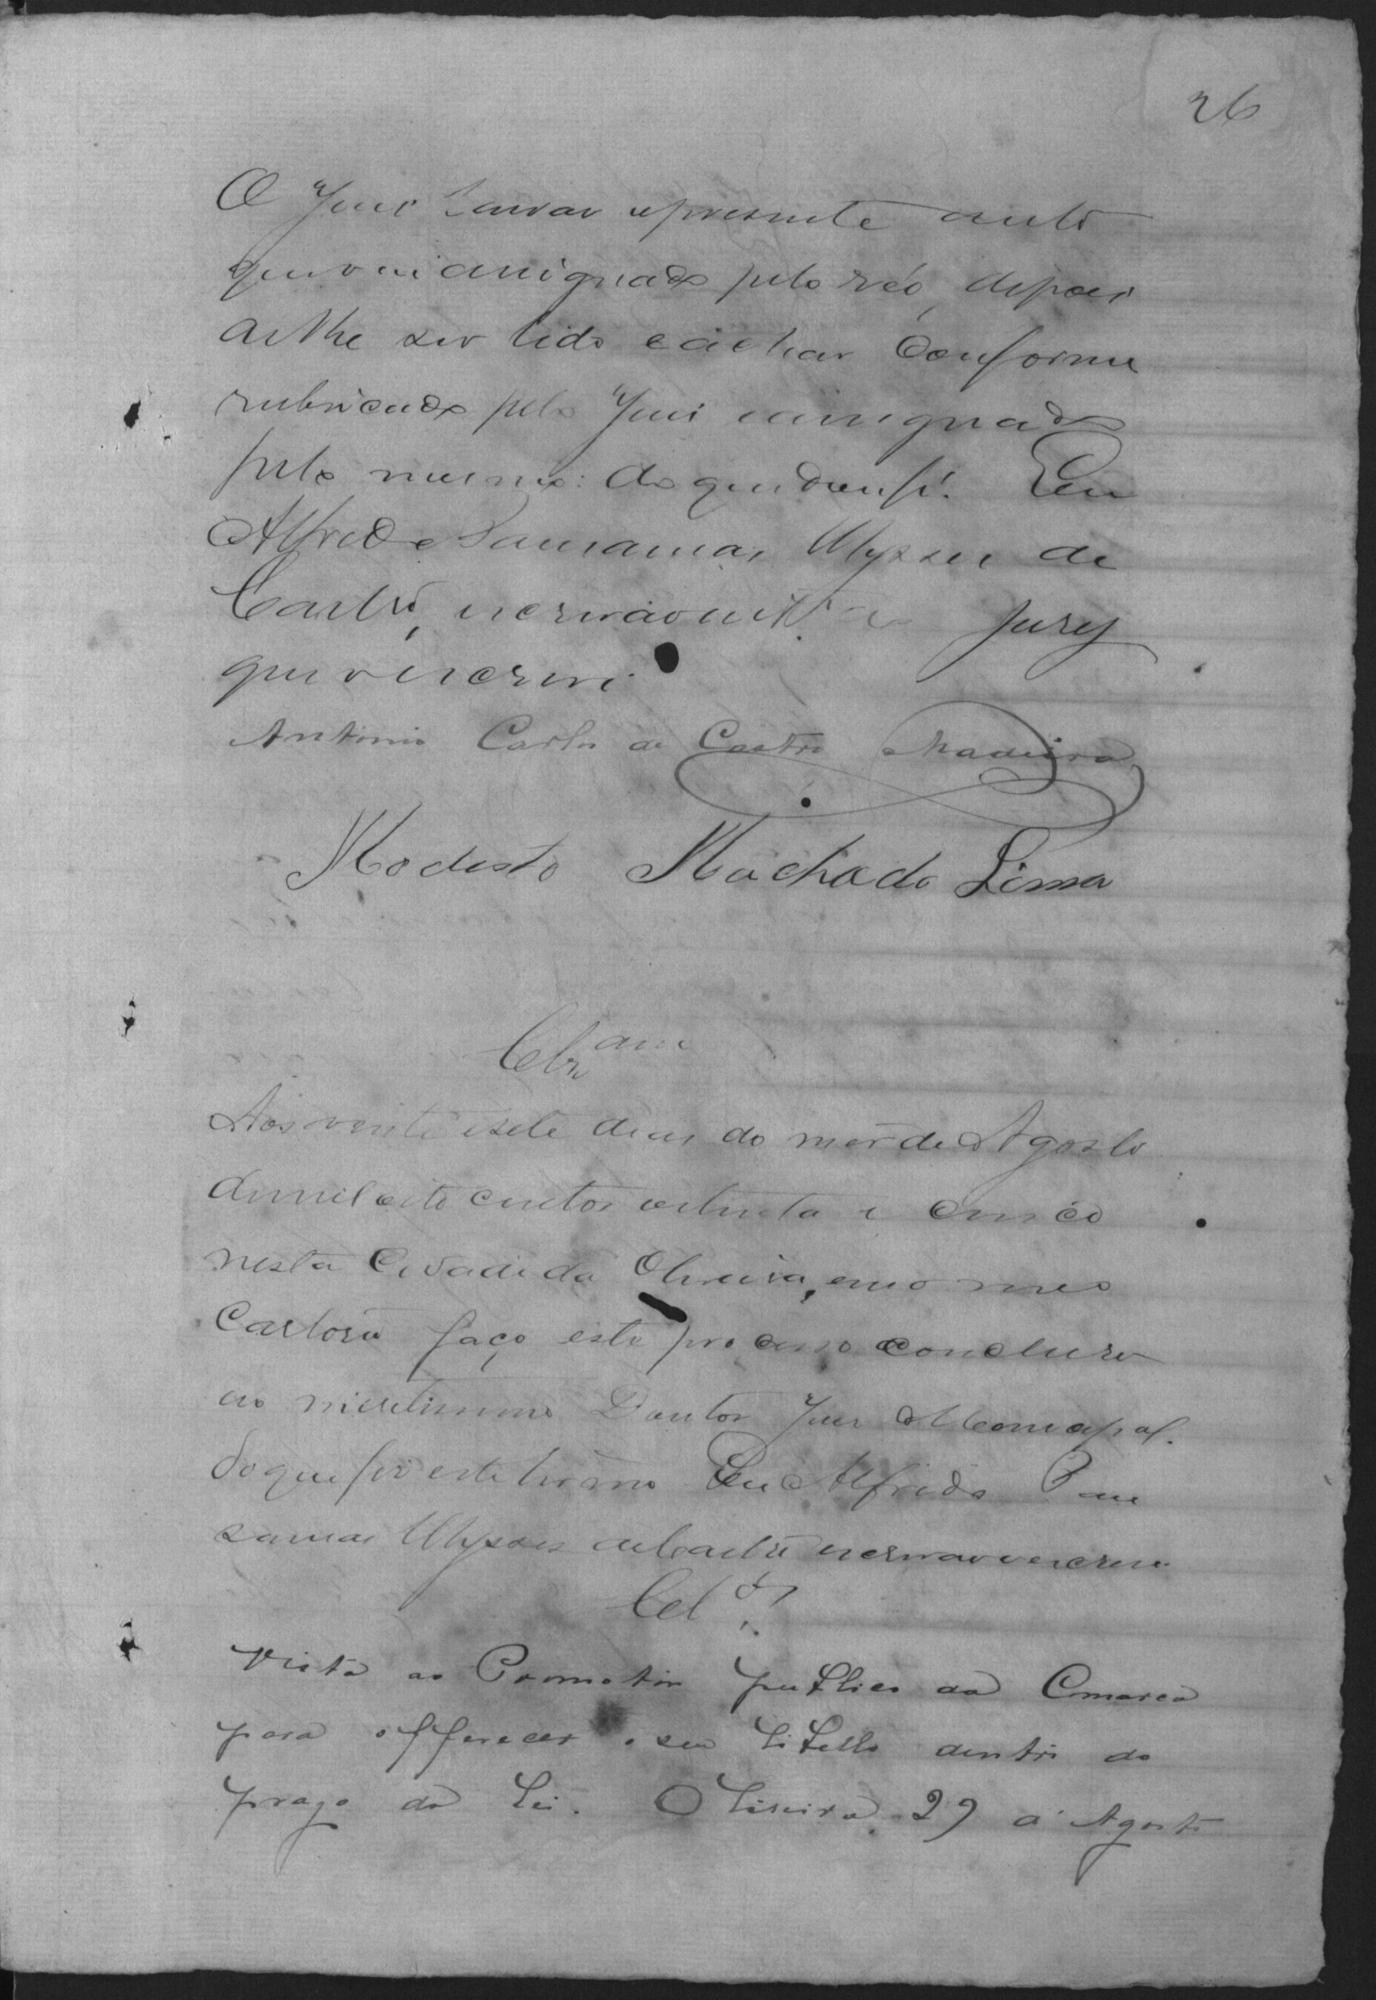 26
O Juiz lavrar o presente auto
que vai assignado pelo réo, depois
de lhe ser lido e achar conforme
rubricado pelo Juiz e assignado
pelo mesmo: do que dou fé. Eu
Alfredo Ulysses de
Castro, escrivão Jury
que o escrevi
Antonio Carlos de Castro Madeira
Modesto Machado Lima
Clzam
Aos vinte e sete dias do mez de Agosto
de mil oito centos oitenta e cinco
nesta Cidade da Oliveira, em o meo
Cartorio faço este processo concluso
ao meretissimo Doutor Juiz Municipal.
do que fiz este termo Eu Alfredo
Ulysses de Castro escrivão o escrevi
Clos
Vista ao Promotor publico da Comarca
para offerecer o seu libello dentro do
prazo da lei. Oliveira 29 de Agosto